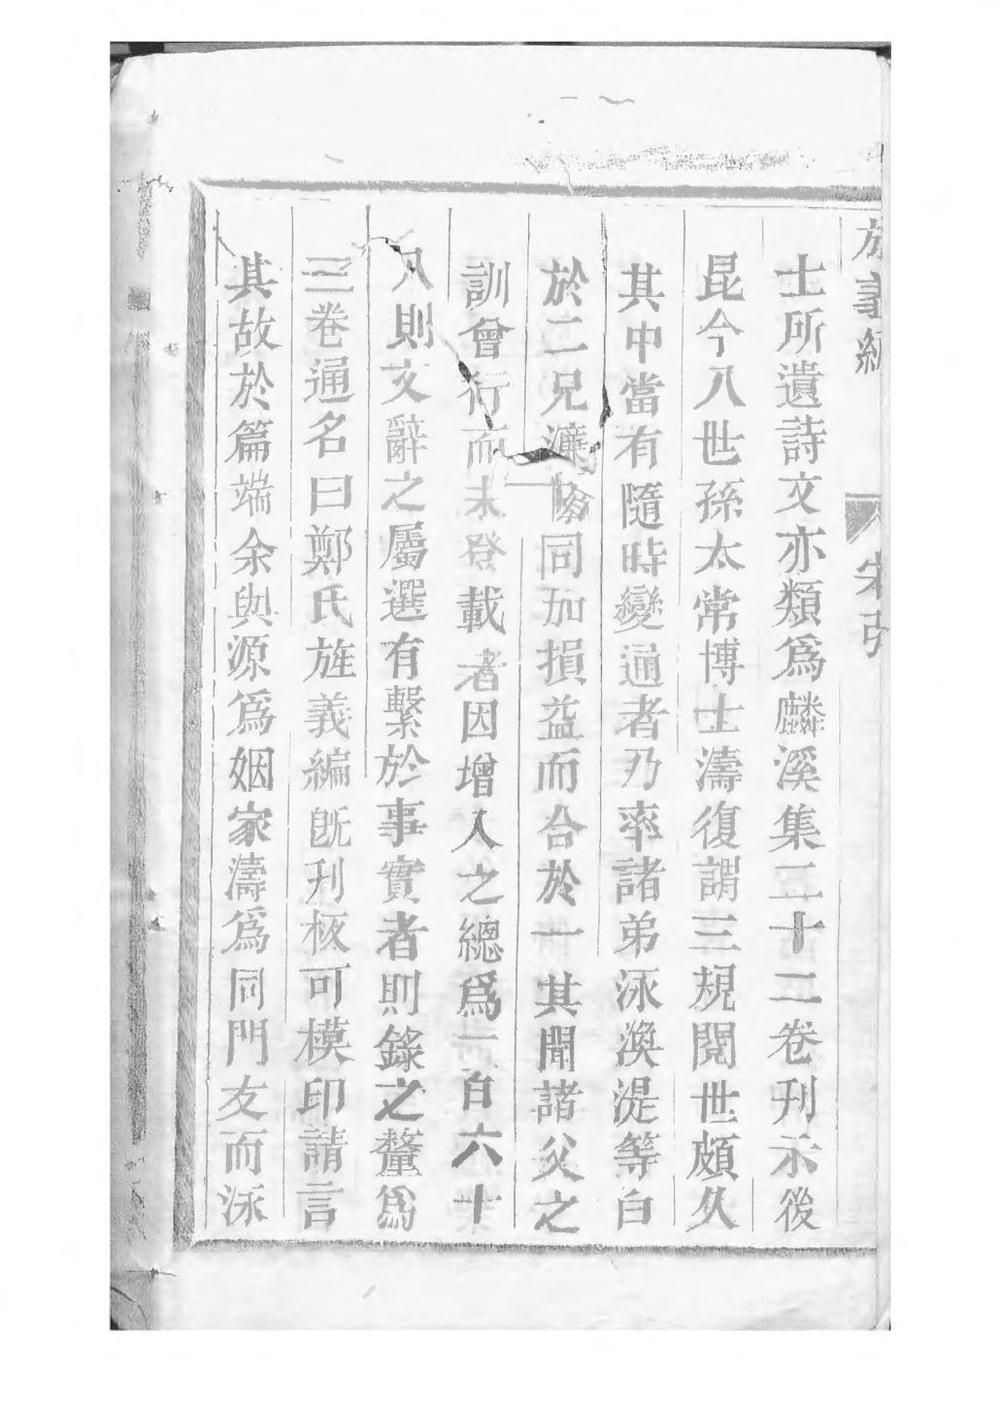 旌義編 宋引
士所遺詩文亦類爲麟溪集二十二卷刊示後
昆今八世孫太常博士濤復謂三規閱世頗久
其中當有隨時變通者乃率諸弟泳渙湜等白
於二兄濂同加損益而合於一其聞諸父之
訓曾行而未登載者因增入之總爲一百六十
八則文辭之屬選有繫於事實者則錄之釐爲
三卷通名曰鄭氏旌義編旣刋板可模印請言
其故於篇端余與源爲姻家濤爲同門友而泳